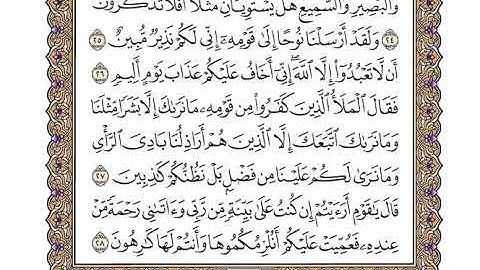 والبصير والسميع هل يستويان مثلا أفلا تذكرون
٢٤ ولقد أرسلنا نوحا إلى قومه إني لكم نذير مبين ٢٥
أن لا تعبدوا إلا الله إني أخاف عليكم عذاب يوم أليم ٢٦
فقال الملأ الذين كفروا من قومه ما نرىك إلا بشرا مثلنا
وما نرىك اتبعك إلا الذين هم أراذلنا بادي الرأي
وما نرى لكم علينا من فضل بل نظنكم كذبين ٢٧
قال يقوم أرءيتم إن كنت على بينة من ربي وءاتىني رحمة من
عنده فعميت عليكم أنلزمكموها وأنتم لها كرهون ٢٨